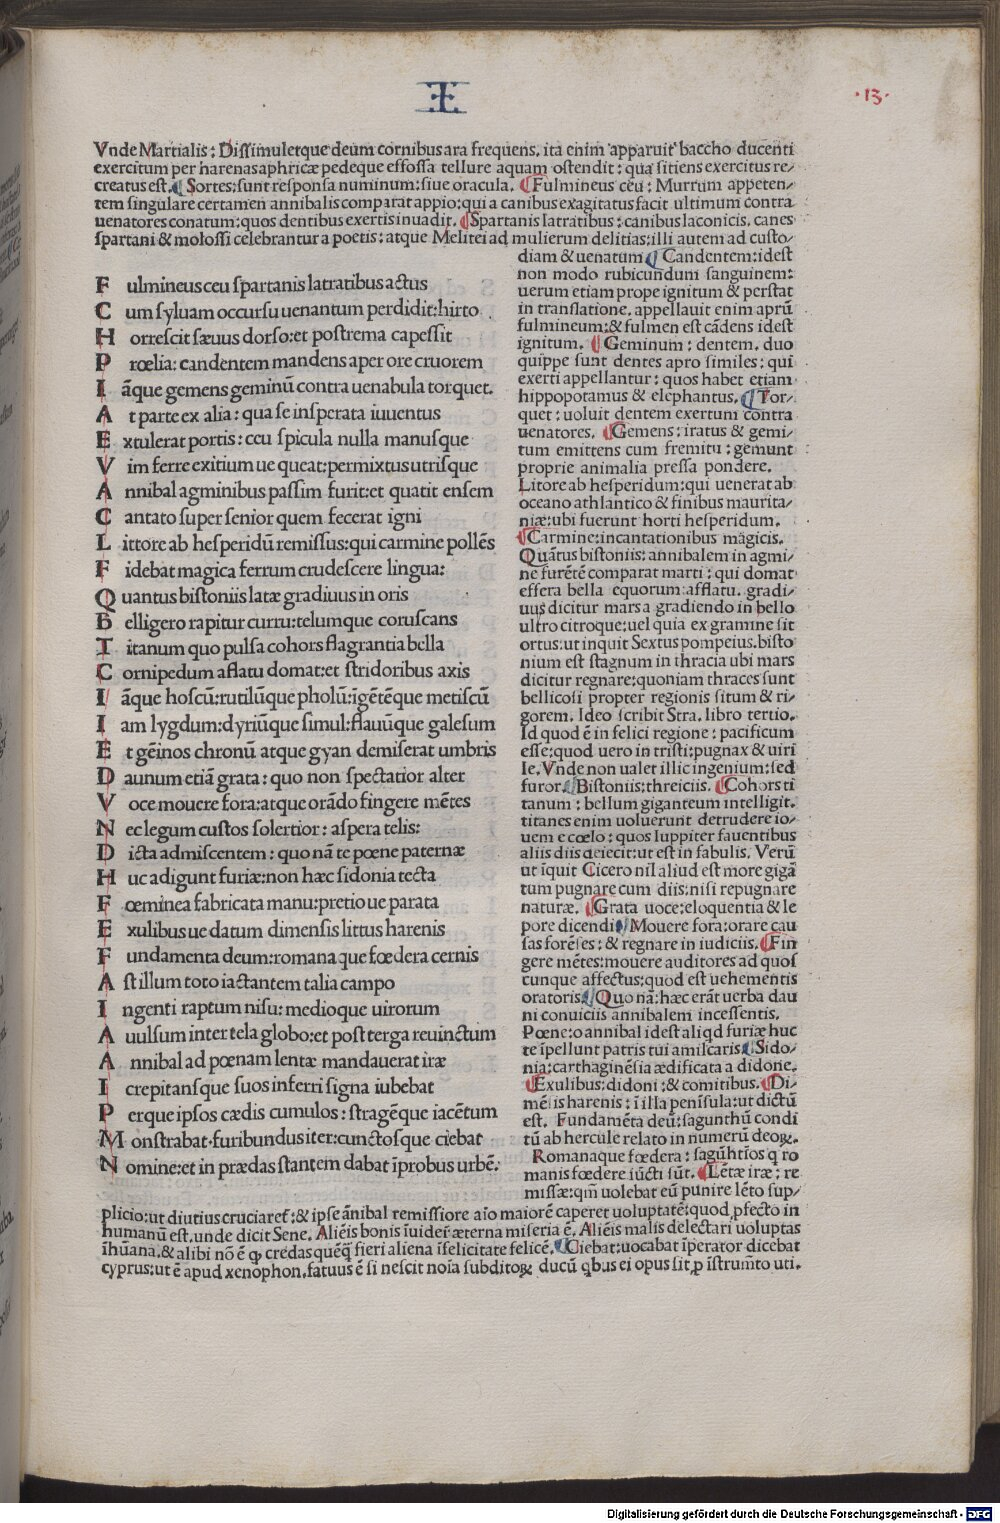 ·13·
Vnde Martialis: Dissimuletque deum cornibus ara frequens. ita enim apparuit baccho ducenti
exercitum per harenas aphricæ pedeque effossa tellure aquam ostendit: qua sitiens exercitus re-
creatus est. Sortes: sunt responsa numinum: siue oracula. Fulmineus ceu: Murrum appeten-
tem singulare certamen annibalis comparat appio: qui a canibus exagitatus facit ultimum contra
uenatores conatum: quos dentibus exertis inuadit. Spartanis latratibus: canibus laconicis. canes
spartani & molossi celebrantur a poetis: atque Melitei ad mulierum delitias: illi autem ad custo-
F ulmineus ceu spartanis latratibus actus
C um syluam occursu uenantum perdidit: hirto
H orrescit sæuus dorso: et postrema capessit
P rœlia: candentem mandens aper ore cruorem
I āque gemens geminū contra uenabula torquet.
A t parte ex alia: qua se insperata iuuentus
E xtulerat portis: ceu spicula nulla manusque
V im ferre exitium ue queat: permixtus utrisque
A nnibal agminibus passim furit: et quatit ensem
C antato super senior quem fecerat igni
L ittore ab hesperidū remissus: qui carmine pollēs
F idebat magica ferrum crudescere lingua:
Q uantus bistoniis latæ gradiuus in oris
B elligero rapitur curru: telumque coruscans
T itanum quo pulsa cohors flagrantia bella
C ornipedum aflatu domat: et stridoribus axis
I āque hoscū: rutilūque pholū: īgētēque metiscū
I am lygdum: dyriūque simul: flauūque galesum
E t gēinos chronū atque gyan demiserat umbris
D aunum etiā grata: quo non spectatior alter
V oce mouere fora: atque orādo fingere mētes
N ec legum custos solertior: aspera telis:
D icta admiscentem: quo nā te pœne paternæ
H uc adigunt furiæ: non hæc sidonia tecta
F œminea fabricata manu: pretio ue parata
E xulibus ue datum dimensis littus harenis
F undamenta deum: romana que fœdera cernis
A st illum toto iactantem talia campo
I ngenti raptum nisu: medioque uirorum
A uulsum inter tela globo: et post terga reuinctum
A nnibal ad pœnam lentæ mandauerat iræ
I crepitansque suos inferri signa iubebat
P erque ipsos cædis cumulos: stragēque iacētum
M onstrabat furibundus iter: cunctosque ciebat
N omine: et in prædas stantem dabat īprobus urbē.
diam & uenatum Candentem: idest
non modo rubicundum sanguinem:
uerum etiam prope ignitum & perstat
in translatione. appellauit enim aprū
fulmineum: & fulmen est cādens idest
ignitum. Geminum: dentem. duo
quippe sunt dentes apro similes: qui
exerti appellantur: quos habet etiam
hippopotamus & elephantus. Tor-
quet: uoluit dentem exertum contra
uenatores. Gemens: iratus & gemi-
tum emittens cum fremitu: gemunt
proprie animalia pressa pondere.
Litore ab hesperidum: qui uenerat ab
oceano athlantico & finibus maurita-
niæ: ubi fuerunt horti hesperidum.
Carmine: incantationibus magicis.
Quātus bistoniis: annibalem in agmi-
ne furētē comparat marti: qui domat
effera bella equorum afflatu. gradi-
uus dicitur mars a gradiendo in bello
ultro citroque: uel quia ex gramine sit
ortus: ut inquit Sextus pompeius. bisto
nium est stagnum in thracia ubi mars
dicitur regnare: quoniam thraces sunt
bellicosi propter regionis situm & ri-
gorem. Ideo scribit Stra. libro tertio.
Id quod ē in felici regione: pacificum
esse: quod uero in tristi: pugnax & uiri
le. Vnde non ualet illic ingenium: sed
furor. Bistoniis: threiciis. Cohors ti
tanum: bellum giganteum intelligit.
titanes enim uoluerunt detrudere io-
uem e cœlo: quos Iuppiter fauentibus
aliis diis deiecit: ut est in fabulis. Verū
ut īquit Cicero nīl aliud est more gigā
tum pugnare cum diis: nisi repugnare
naturæ. Grata uoce: eloquentia & le
pore dicendi Mouere fora: orare cau
sas forēses: & regnare in iudiciis. Fin
gere mētes: mouere auditores ad quos
cunque affectus: quod est uehementis
oratoris. Quo nā: hæc erāt uerba dau
ni conuiciis annibalem incessentis.
Pœne: o annibal idest aliqd furiæ huc
te īpellunt patris tui amilcaris. Sido-
nia: carthaginēsia ædificata a didone.
Exulibus: didoni: & comitibus. Di-
mēis harenis: ī illa penīsula: ut dictū
est. Fundamēta deū: sagunthū condi
tū ab hercule relato in numerū deoꝝ.
Romanaque fœdera: sagūhtīos q ro
manis fœdere iūcti sūt. Lētæ iræ: re
missæ: qm̄ uolebat eū punire lēto sup-
plicio: ut diutius cruciaret̄: & ipse ānibal remissiore aīo maiorē caperet uoluptatē: quod pfecto in
humanū est. unde dicit Sene. Aliēis bonis īuideri æterna miseria ē. Aliēis malis delectari uoluptas
īhūana. & alibi nō ē q credas quēq̄ fieri aliena īfelicitate felicē. Ciebat: uocabat īperator dicebat
cyprus: ut ē apud xenophon. fatuus ē si nescit noīa subditoꝝ ducū qbus ei opus sit p īstrumēto uti.
Digitalisierung gefördert durch die Deutsche Forschungsgemeinschaft - DFG